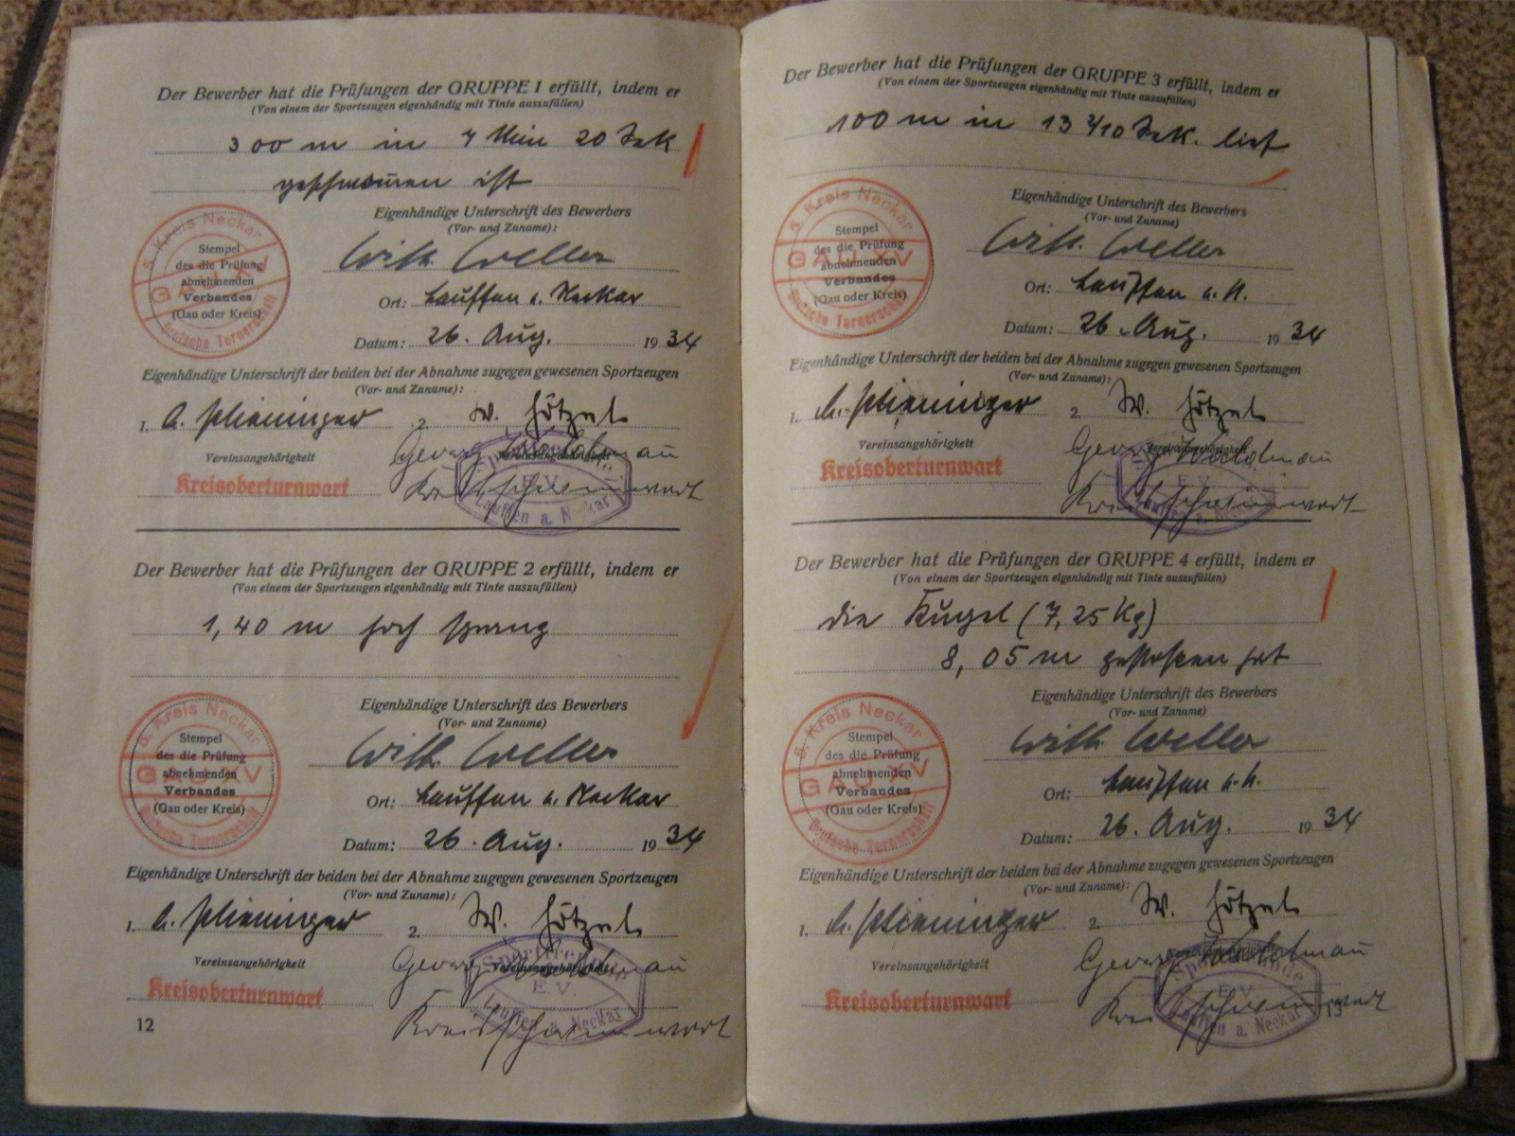 Der Bewerber hat die Prüfungen der GRUPPE 1 erfüllt, indem er
(Von einem der Sportzeugen eigenhändig mit Tinte auszufüllen)
300 m in 7 Min 20 Sek
geschwommen ist
5. Kreis Neckar
GAU XV
Deutsche Turnerschaft
Stempel
des die Prüfung
abnehmenden
Verbandes
(Gau oder Kreis)
Eigenhändige Unterschrift des Bewerbers
(Vor- und Zuname):
Wilh. Weller
Ort: Lauffen a. Neckar
Datum: 26. Aug. 1934
Eigenhändige Unterschrift der beiden bei der Abnahme zugegen gewesenen Sportzeugen
(Vor- und Zuname):
1. A. Plieninger 2. W. Hötzel
Vereinsangehörigkeit
Georg
Kreisoberturnwart
E.V.
Lauffen a. Neckar
Der Bewerber hat die Prüfungen der GRUPPE 2 erfüllt, indem er
(Von einem der Sportzeugen eigenhändig mit Tinte auszufüllen)
1,40 m hoch sprang
5. Kreis Neckar
GAU XV
Deutsche Turnerschaft
Stempel
des die Prüfung
abnehmenden
Verbandes
(Gau oder Kreis)
Eigenhändige Unterschrift des Bewerbers
(Vor- und Zuname)
Wilh. Weller
Ort: Lauffen a. Neckar
Datum: 26. Aug. 1934
Eigenhändige Unterschrift der beiden bei der Abnahme zugegen gewesenen Sportzeugen
(Vor- und Zuname):
1. A. Plieninger 2. W. Hötzel
Vereinsangehörigkeit Vereinsangehörigkeit
Georg
Kreisoberturnwart
Sportfreunde
E.V.
Lauffen a. Neckar
12
Der Bewerber hat die Prüfungen der GRUPPE 3 erfüllt, indem er
(Von einem der Sportzeugen eigenhändig mit Tinte auszufüllen)
100 m in 13 4/10 Sek. lief
5. Kreis Neckar
GAU XV
Deutsche Turnerschaft
Stempel
des die Prüfung
abnehmenden
Verbandes
(Gau oder Kreis)
Eigenhändige Unterschrift des Bewerbers
(Vor- und Zuname)
Wilh. Weller
Ort: Lauffen a. N.
Datum: 26. Aug. 1934
Eigenhändige Unterschrift der beiden bei der Abnahme zugegen gewesenen Sportzeugen
(Vor- und Zuname):
1. A. Plieninger 2 W. Hötzel
Vereinsangehörigkeit Vereinsangehörigkeit
Georg
Kreisoberturnwart
E.V.
Lauffen a. Neckar
Der Bewerber hat die Prüfungen der GRUPPE 4 erfüllt, indem er
(Von einem der Sportzeugen eigenhändig mit Tinte auszufüllen)
die Kugel (7,25 Kg)
8,05 m gestoßen hat
5. Kreis Neckar
GAU XV
Deutsche Turnerschaft
Stempel
des die Prüfung
abnehmenden
Verbandes
(Gau oder Kreis)
Eigenhändige Unterschrift des Bewerbers
(Vor- und Zuname)
Wilh. Weller
Ort: Lauffen a. N.
Datum: 26. Aug. 1934
Eigenhändige Unterschrift der beiden bei der Abnahme zugegen gewesenen Sportzeugen
(Vor- und Zuname):
1. A. Plieninger 2. W. Hötzel
Vereinsangehörigkeit
Georg
Kreisoberturnwart
Sportfreunde
E.V.
Lauffen a. Neckar
13